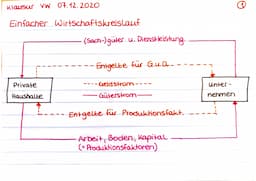 Klausur VW 07.12.2020 ①
Einfacher Wirtschaftskreislauf
(Sach-)güter u. Dienstleistung
Entgelte für G.u.D.
Private
Haushalte
Geldstrom
Güterstrom
Unter-
nehmen
Entgelte für Produktionsfakt.
Arbeit, Boden, Kapital
(=Produktionsfaktoren)